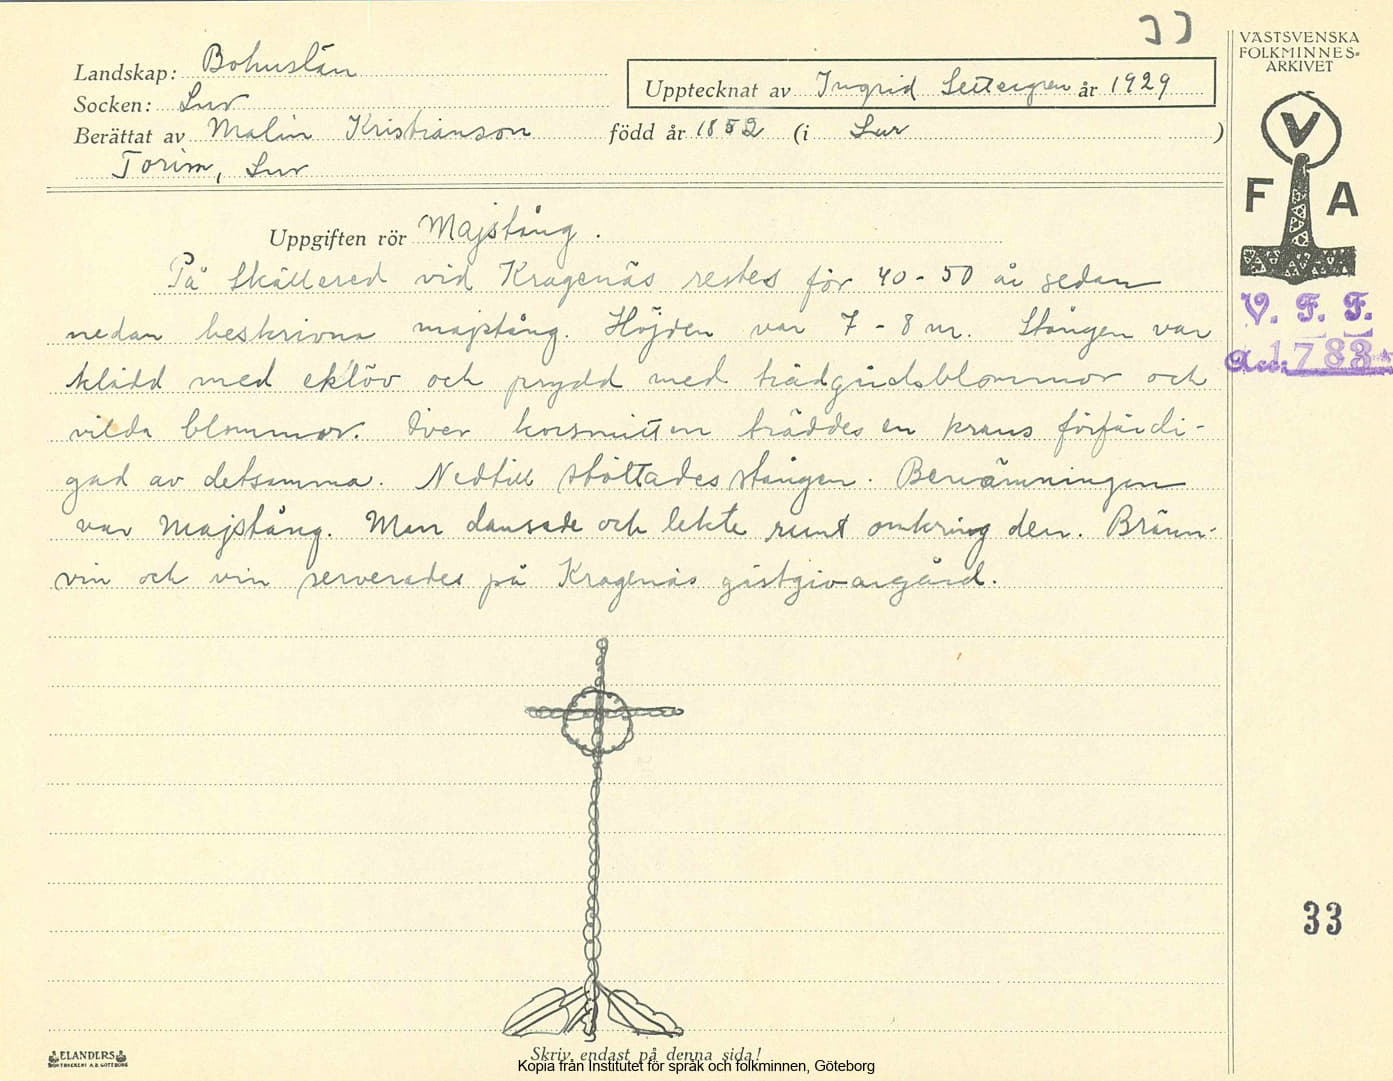 VÄSTSVENSKA
FOLKMINNES-
ARKIVET
Landskap: Bohuslän
Upptecknat av Ingrid Settergren år 1929
Socken: Lur
Berättat av Malin Kristianson född år 1852 (i Lur )
Torim, Lur
V
F A
Uppgiften rör Majstång.
På Skällered vid Kragenäs restes för 40-50 år sedan
nedan beskrivna majstång. Höjden var 7-8 m. Stången var
klädd med eklöv och prydd med trädgårdsblommor och
vilda blommor. Över korsmitten träddes en krans förfärdi-
gad av detsamma. Nedtill stöttades stången. Benämningen
var Majstång. Man dansade och lekte runt omkring den. Bränn-
vin och vin serverades på Kragenäs gästgivaregård.
V. F. F.
Acc. 1783
33
ELANDERS
BOKTRYCKERI A.B. GÖTEBORG
Skriv endast på denna sida!
Kopia från Institutet för språk och folkminnen, Göteborg